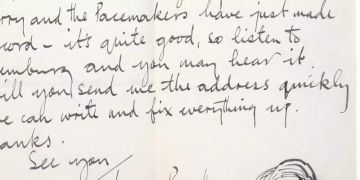 rry and the Pacemakers have just made
cord - it's quite good, so listen to
emburg and you may hear it.
ill you send me the address quickly
e can write and fix everything up.
anks.
See you